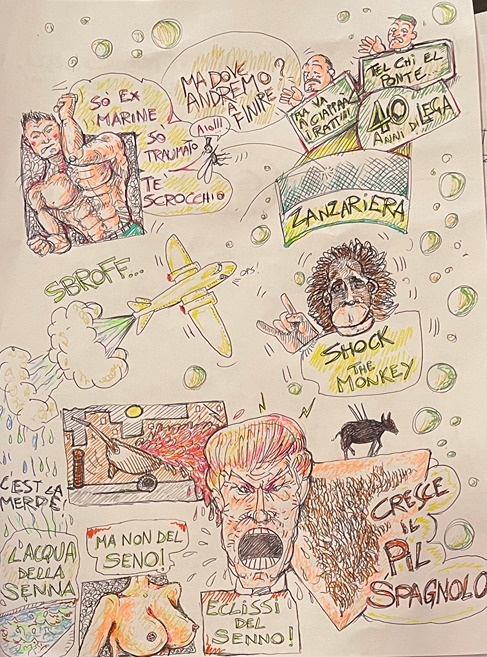 SO EX
MARINE
SO
TRAUMATO
TE
SCROCCHIO
MA DOVE
ANDREMO
A
FINIRE?
AIO!!!
MA VA
A CIAPPAA
I RATT!!!
TEL CHI EL
PONTE...
40
ANNI DI LEGA
ZANZARIERA
SBROFF...
OPS!
SHOCK
THE
MONKEY
C'EST LA
MERDE!
L'ACQUA
DELLA
SENNA
MA NON DEL
SENO!
ECLISSI
DEL
SENNO!
CRESCE
IL
PIL
SPAGNOLO